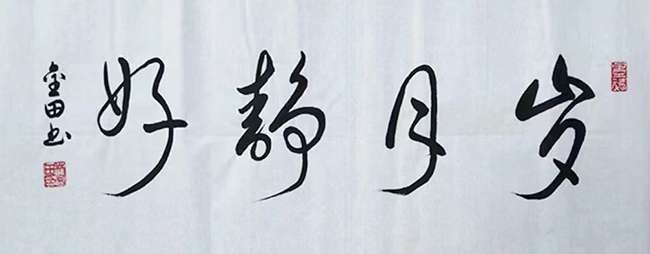 岁月静好
金田书